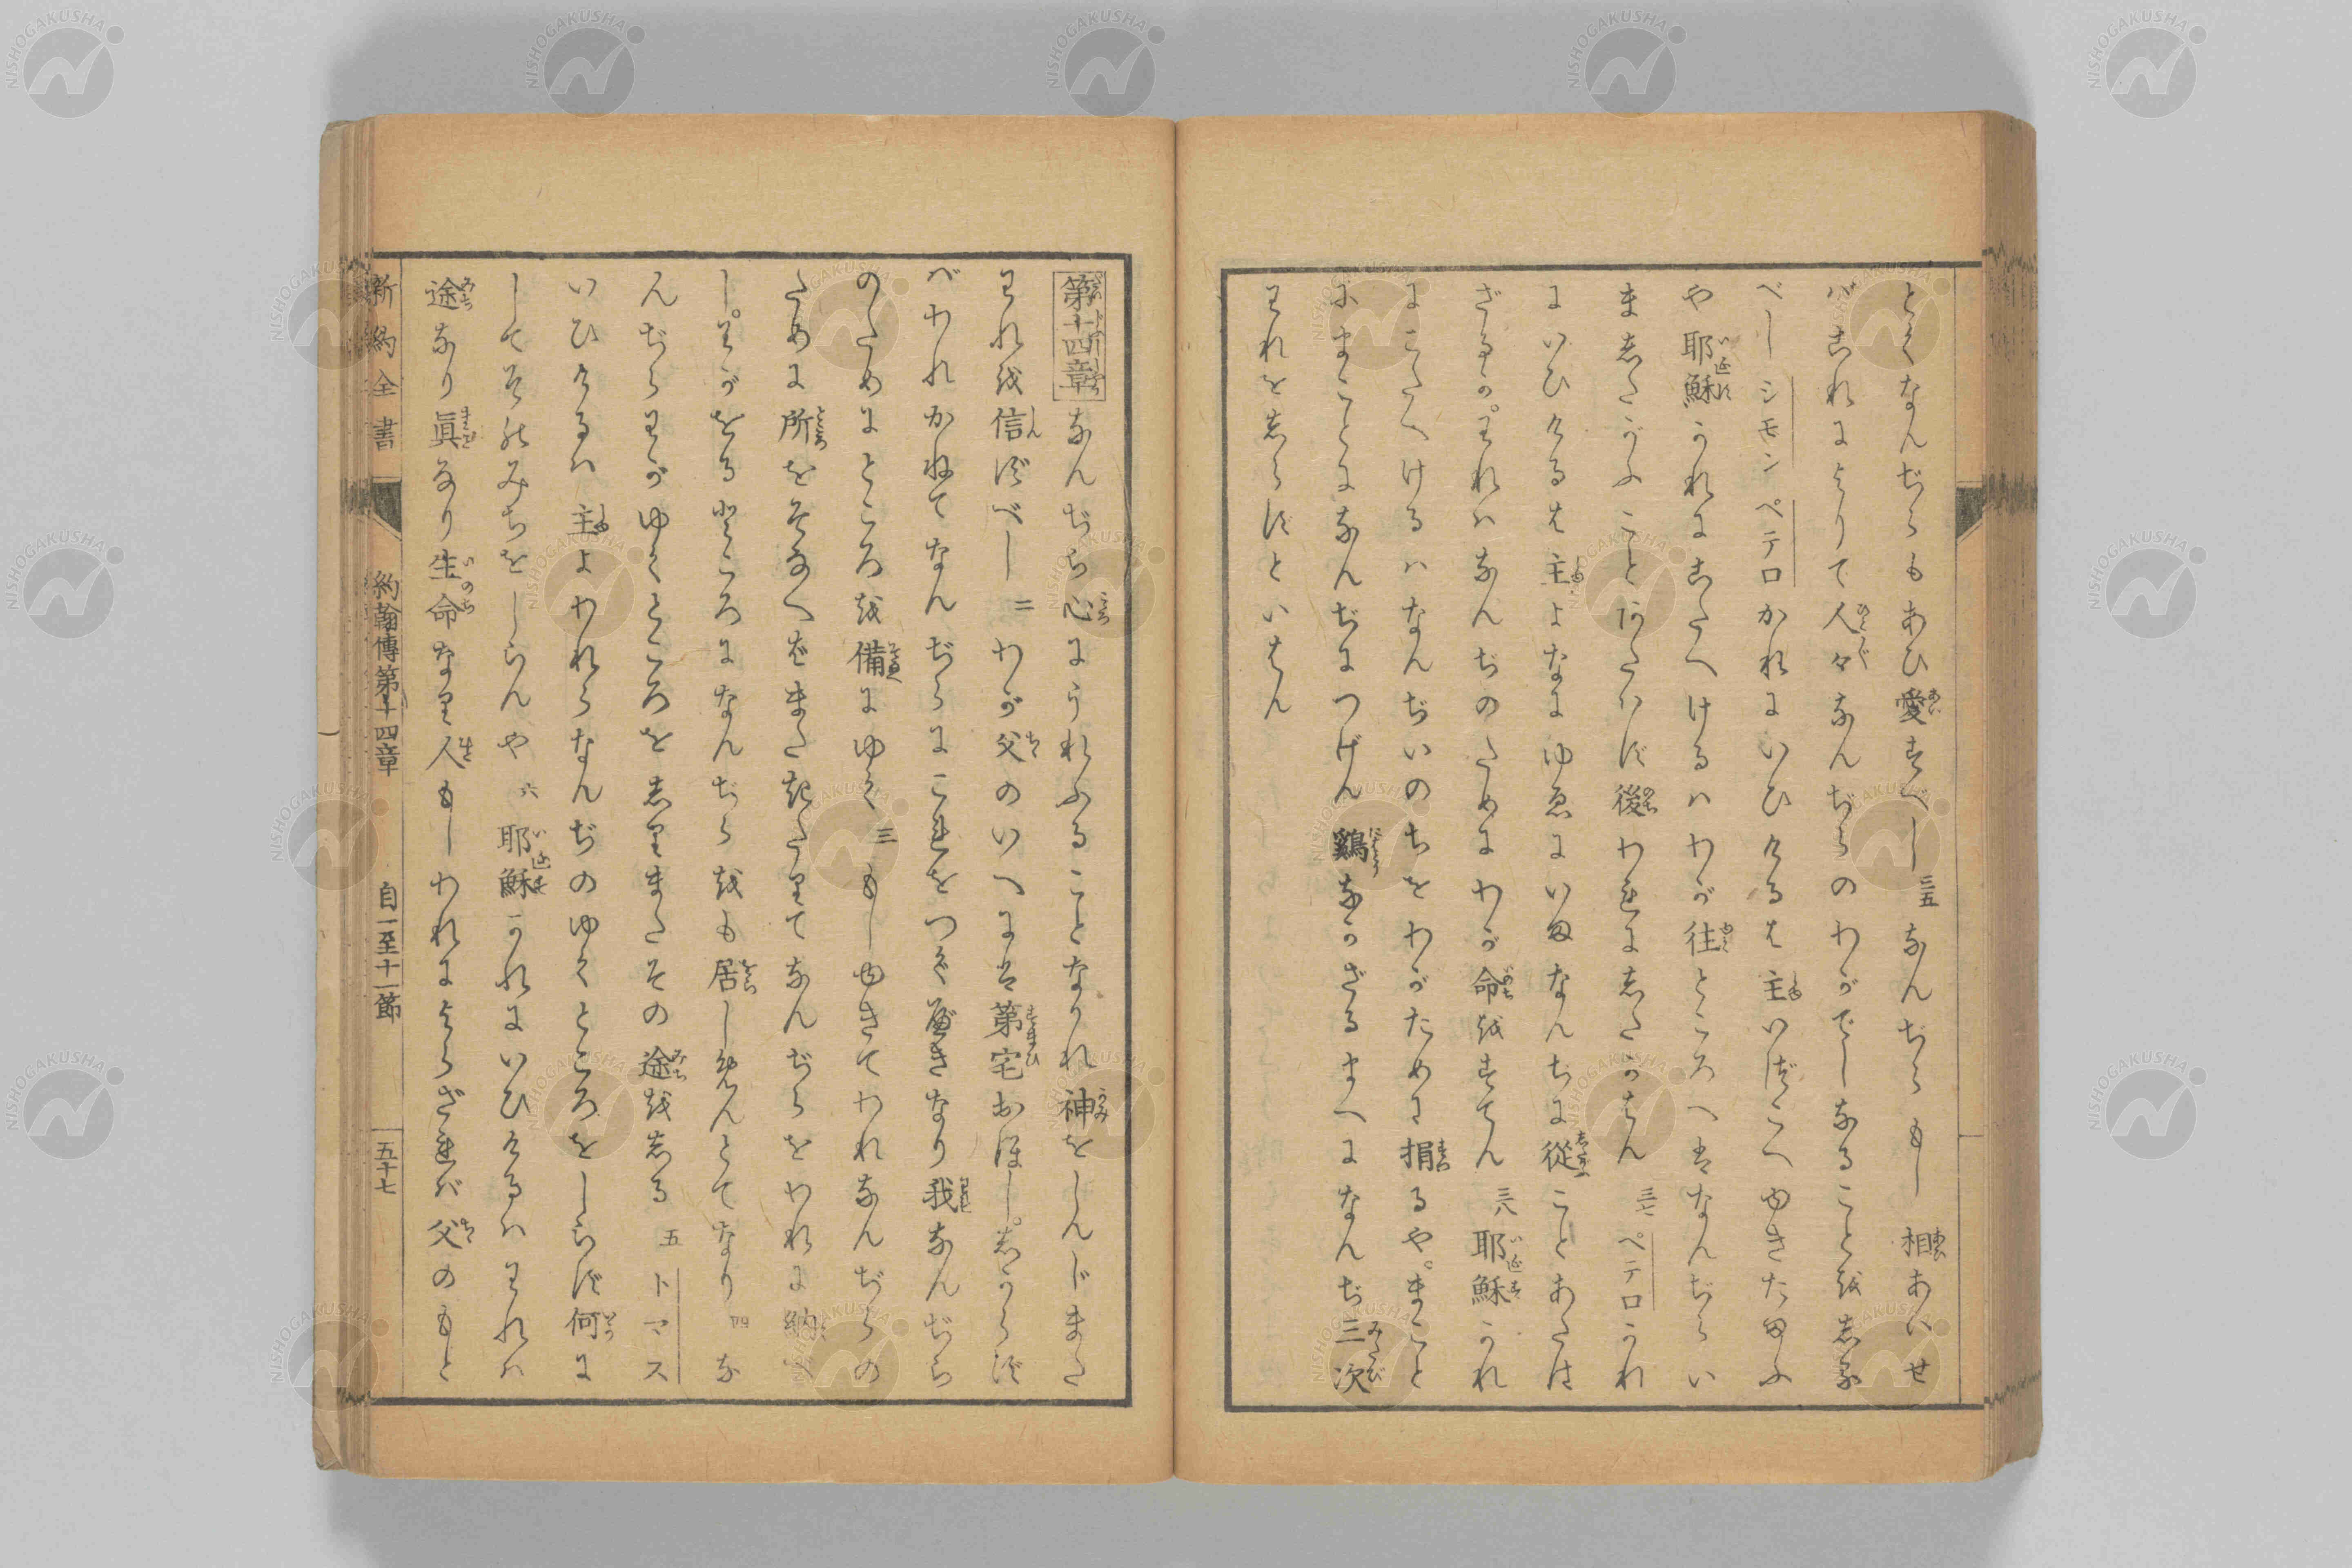 とくなんぢらもあひ愛すべし三五なんぢらもし相あいせ
バこれによりて人々なんぢらのわがでしなることを志る
べし シモン ペテロかれにいひけるは主いづこへゆきたまふ
や耶穌かれにこたへけるハわが往ところへはなんぢらい
ま志たがふことあたハず後われに志たがはん 三七 ペテロかれ
にいひけるは主よなにゆゑにいまなんぢに從ことあたは
ざるか。われハなんぢのためにわが命をすてん 三八 耶穌かれ
にこたへけるハなんぢいのちをわがために捐るや。まこと
にまことになんぢにつげん鷄なかざるまへになんぢ三次
われを志らずといはん
第十四章 なんぢら心にうれふることなかれ神をしんじまた
われを信ずべし 二 わが父のいへには第宅おほし。志からず
バわれかねてなんぢらにこれをつぐべきなり我なんぢら
のためにところを備にゆく 三 もしゆきてわれなんぢらの
ために所をそなへばまた起たりてなんぢらをわれに納べ
し。わがをるところになんぢらをも居しめんとてなり 四 な
んぢらわがゆくところを志りまたその途を志る 五 トマス
いひけるハ主よわれらなんぢのゆくところをしらず何に
してそのみちをしらんや 六 耶穌かれにいひけるハわれハ
途なり眞なり生命なり人もしわれによらざれバ父のもと
新約全書 約翰傳第十四章 自一至十一節 五十七
NISHOGAKUSHA